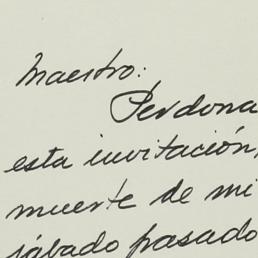 Maestro:
Perdona
esta invitación,
muerte de mi
sábado pasado